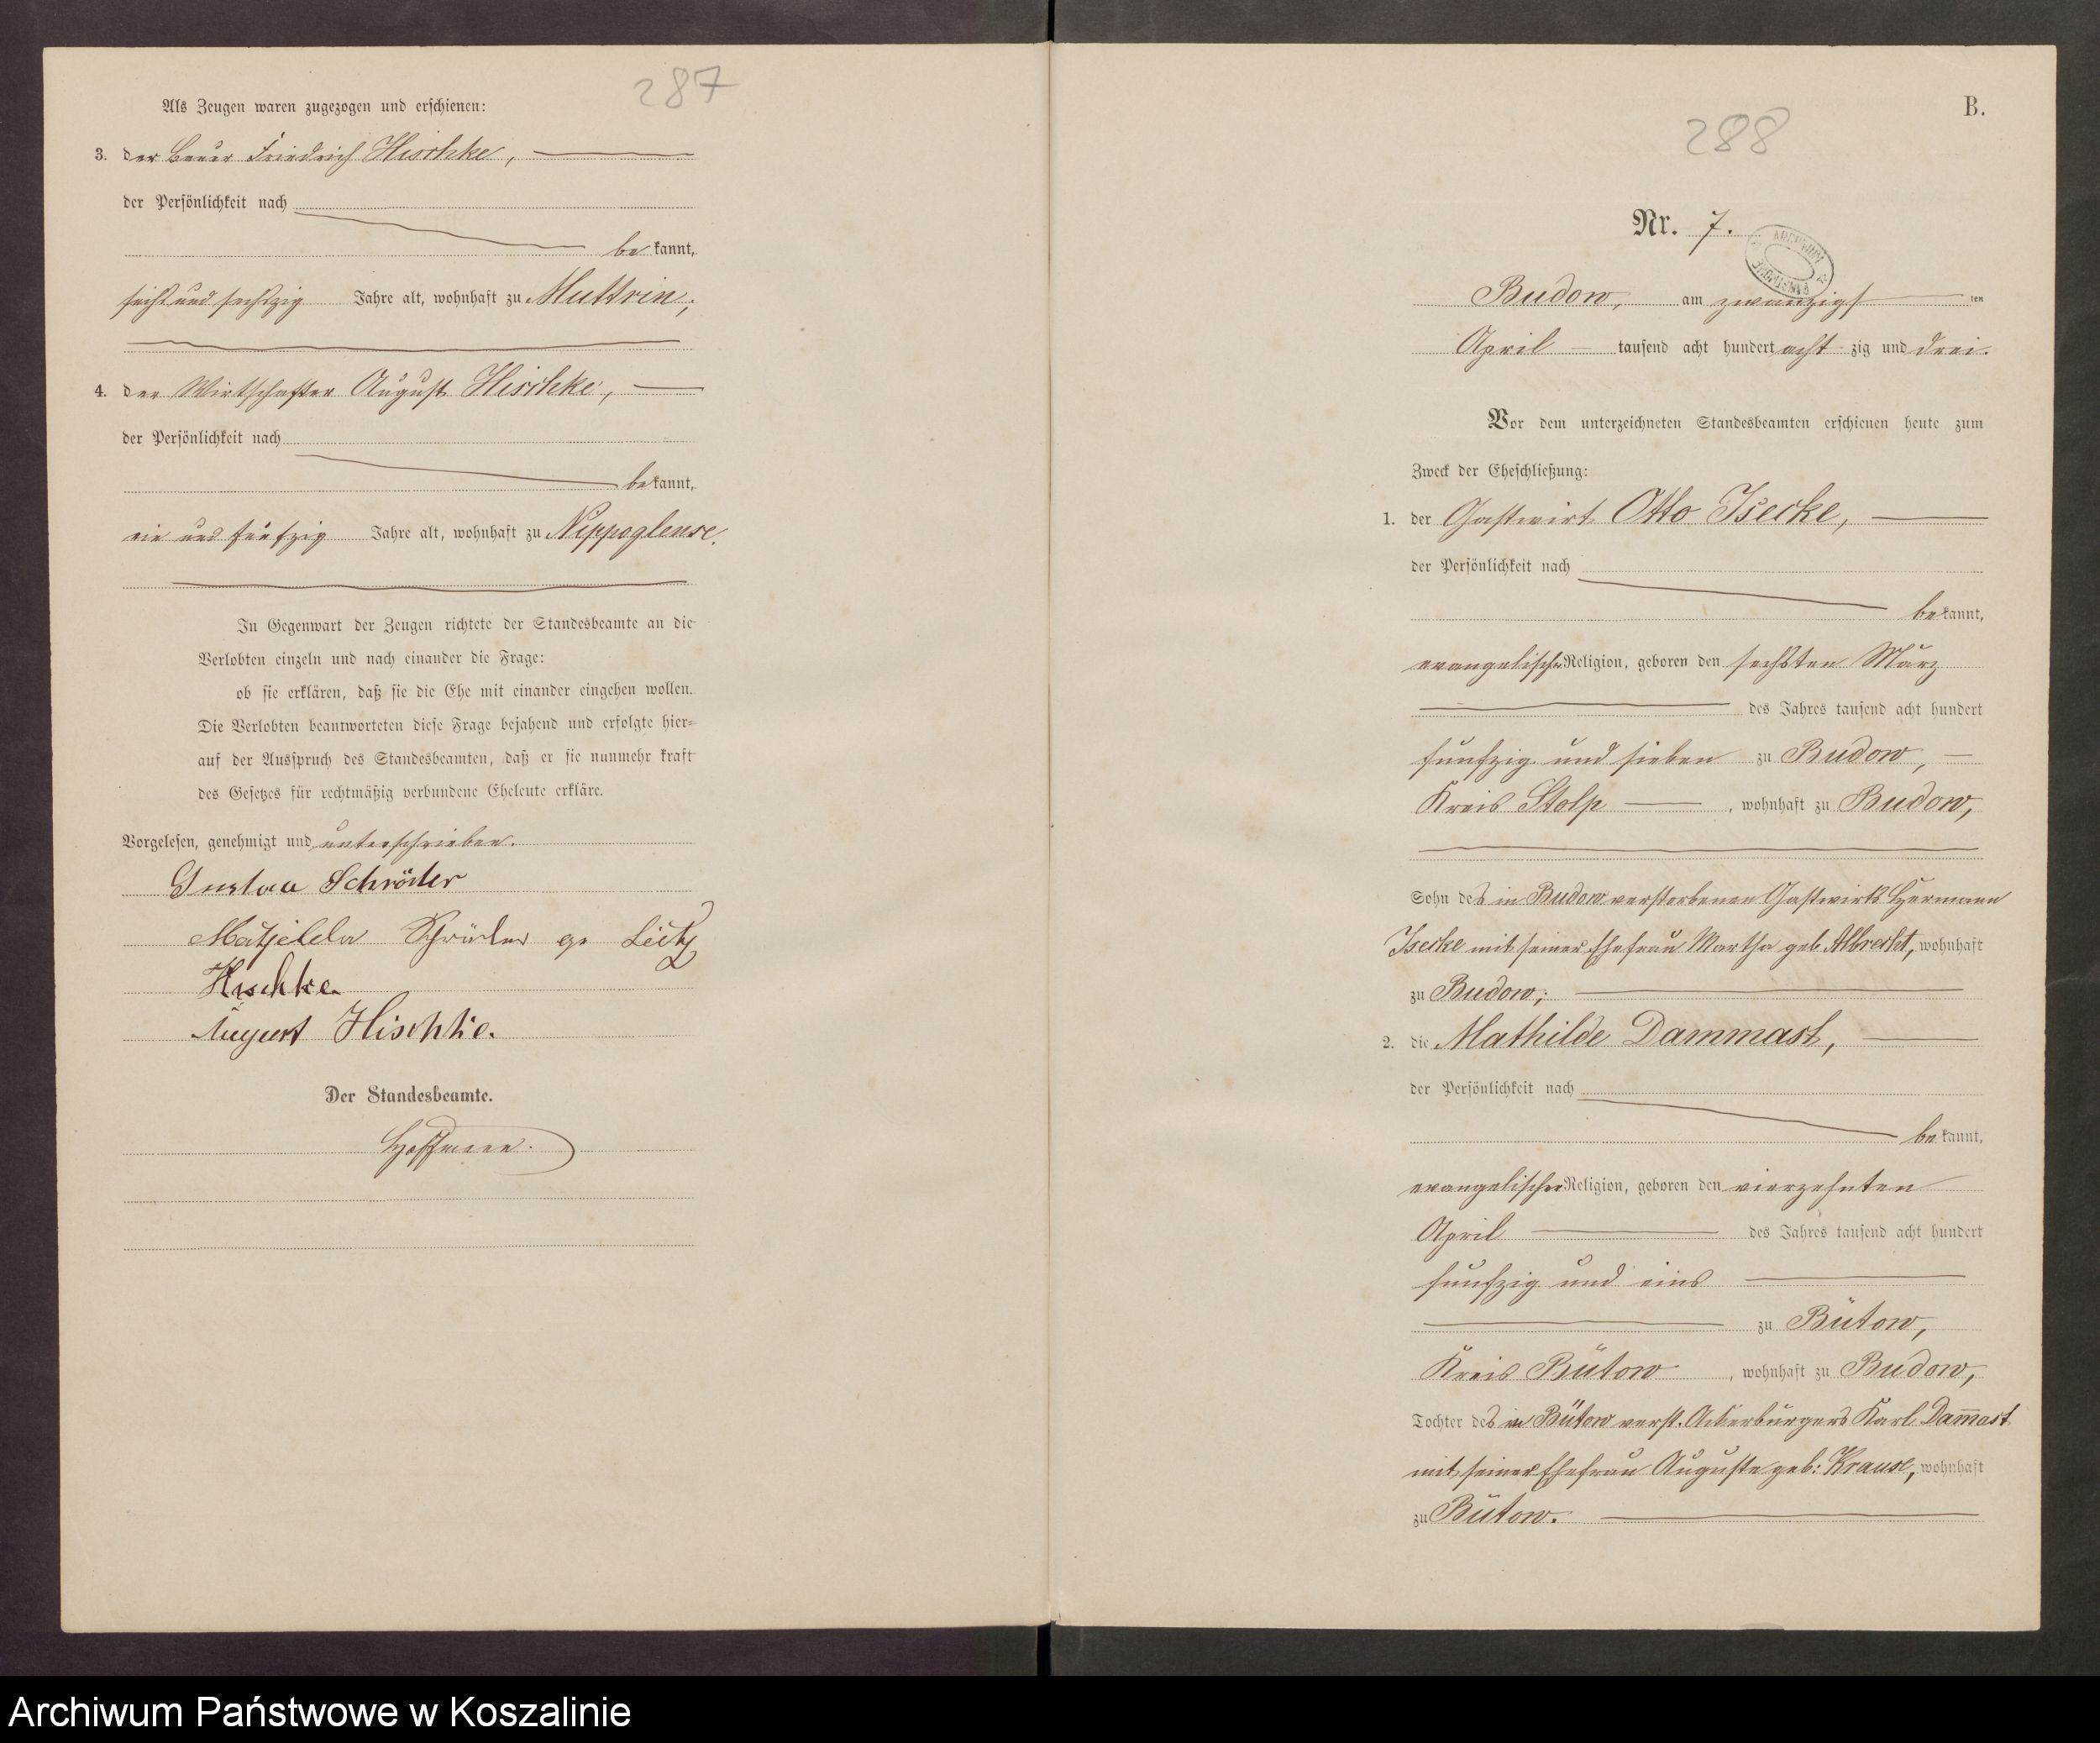 287
Als Zeugen waren zugezogen und erschienen:
3. der Bauer Friedrich Hischke,
der Persönlichkeit nach
bekannt,
sechs und sechszig Jahre alt, wohnhaft zu Muttrin;
4. der Wirtschafter August Hischke,
der Persönlichkeit nach
bekannt,
ein und fünfzig Jahre alt, wohnhaft zu Nippoglense.
In Gegenwart der Zeugen richtete der Standesbeamte an die
Verlobten einzeln und nach einander die Frage:
ob sie erklären, daß sie die Ehe mit einander eingehen wollen.
Die Verlobten beantworteten diese Frage bejahend und erfolgte hier-
auf der Ausspruch des Standesbeamten, daß er sie nunmehr kraft
des Gesetzes für rechtmäßig verbundene Eheleute erkläre.
Vorgelesen, genehmigt und unterschrieben.
Gustav Schröder
Schröder ge
Hischke
August Hischke.
Der Standesbeamte.
Hoffmann.
B.
288
Nr. 7.
Budow, am zwanzigsten
April tausend acht hundert acht zig und drei.
Vor dem unterzeichneten Standesbeamten erschienen heute zum
Zweck der Eheschließung:
1. der Gastwirt Otto Isecke,
der Persönlichkeit nach
bekannt,
evangelischer Religion, geboren den sechsten März
des Jahres tausend acht hundert
fünfzig und sieben zu Budow,
Kreis Stolp, wohnhaft zu Budow,
Sohn des in Budow verstorbenen Gastwirts Hermann
Isecke mit seiner Ehefrau Martha geb. Albrecht, wohnhaft
zu Budow;
2. die Mathilde Dammast,
der Persönlichkeit nach
bekannt,
evangelischer Religion, geboren den vierzehnten
April des Jahres tausend acht hundert
fünfzig und eins
zu Bütow,
Kreis Bütow, wohnhaft zu Budow,
Tochter des in Bütow verst. Ackerbürgers Karl Dam̄ast
mit seiner Ehefrau Auguste geb: Krause, wohnhaft
zu Bütow.
Archiwum Państwowe w Koszalinie